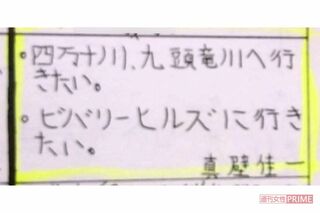 。四万十川、九頭竜川へ行
きたい。
。ビバリーヒルズに行き
たい。
真壁佳一
週刊女性PRIME